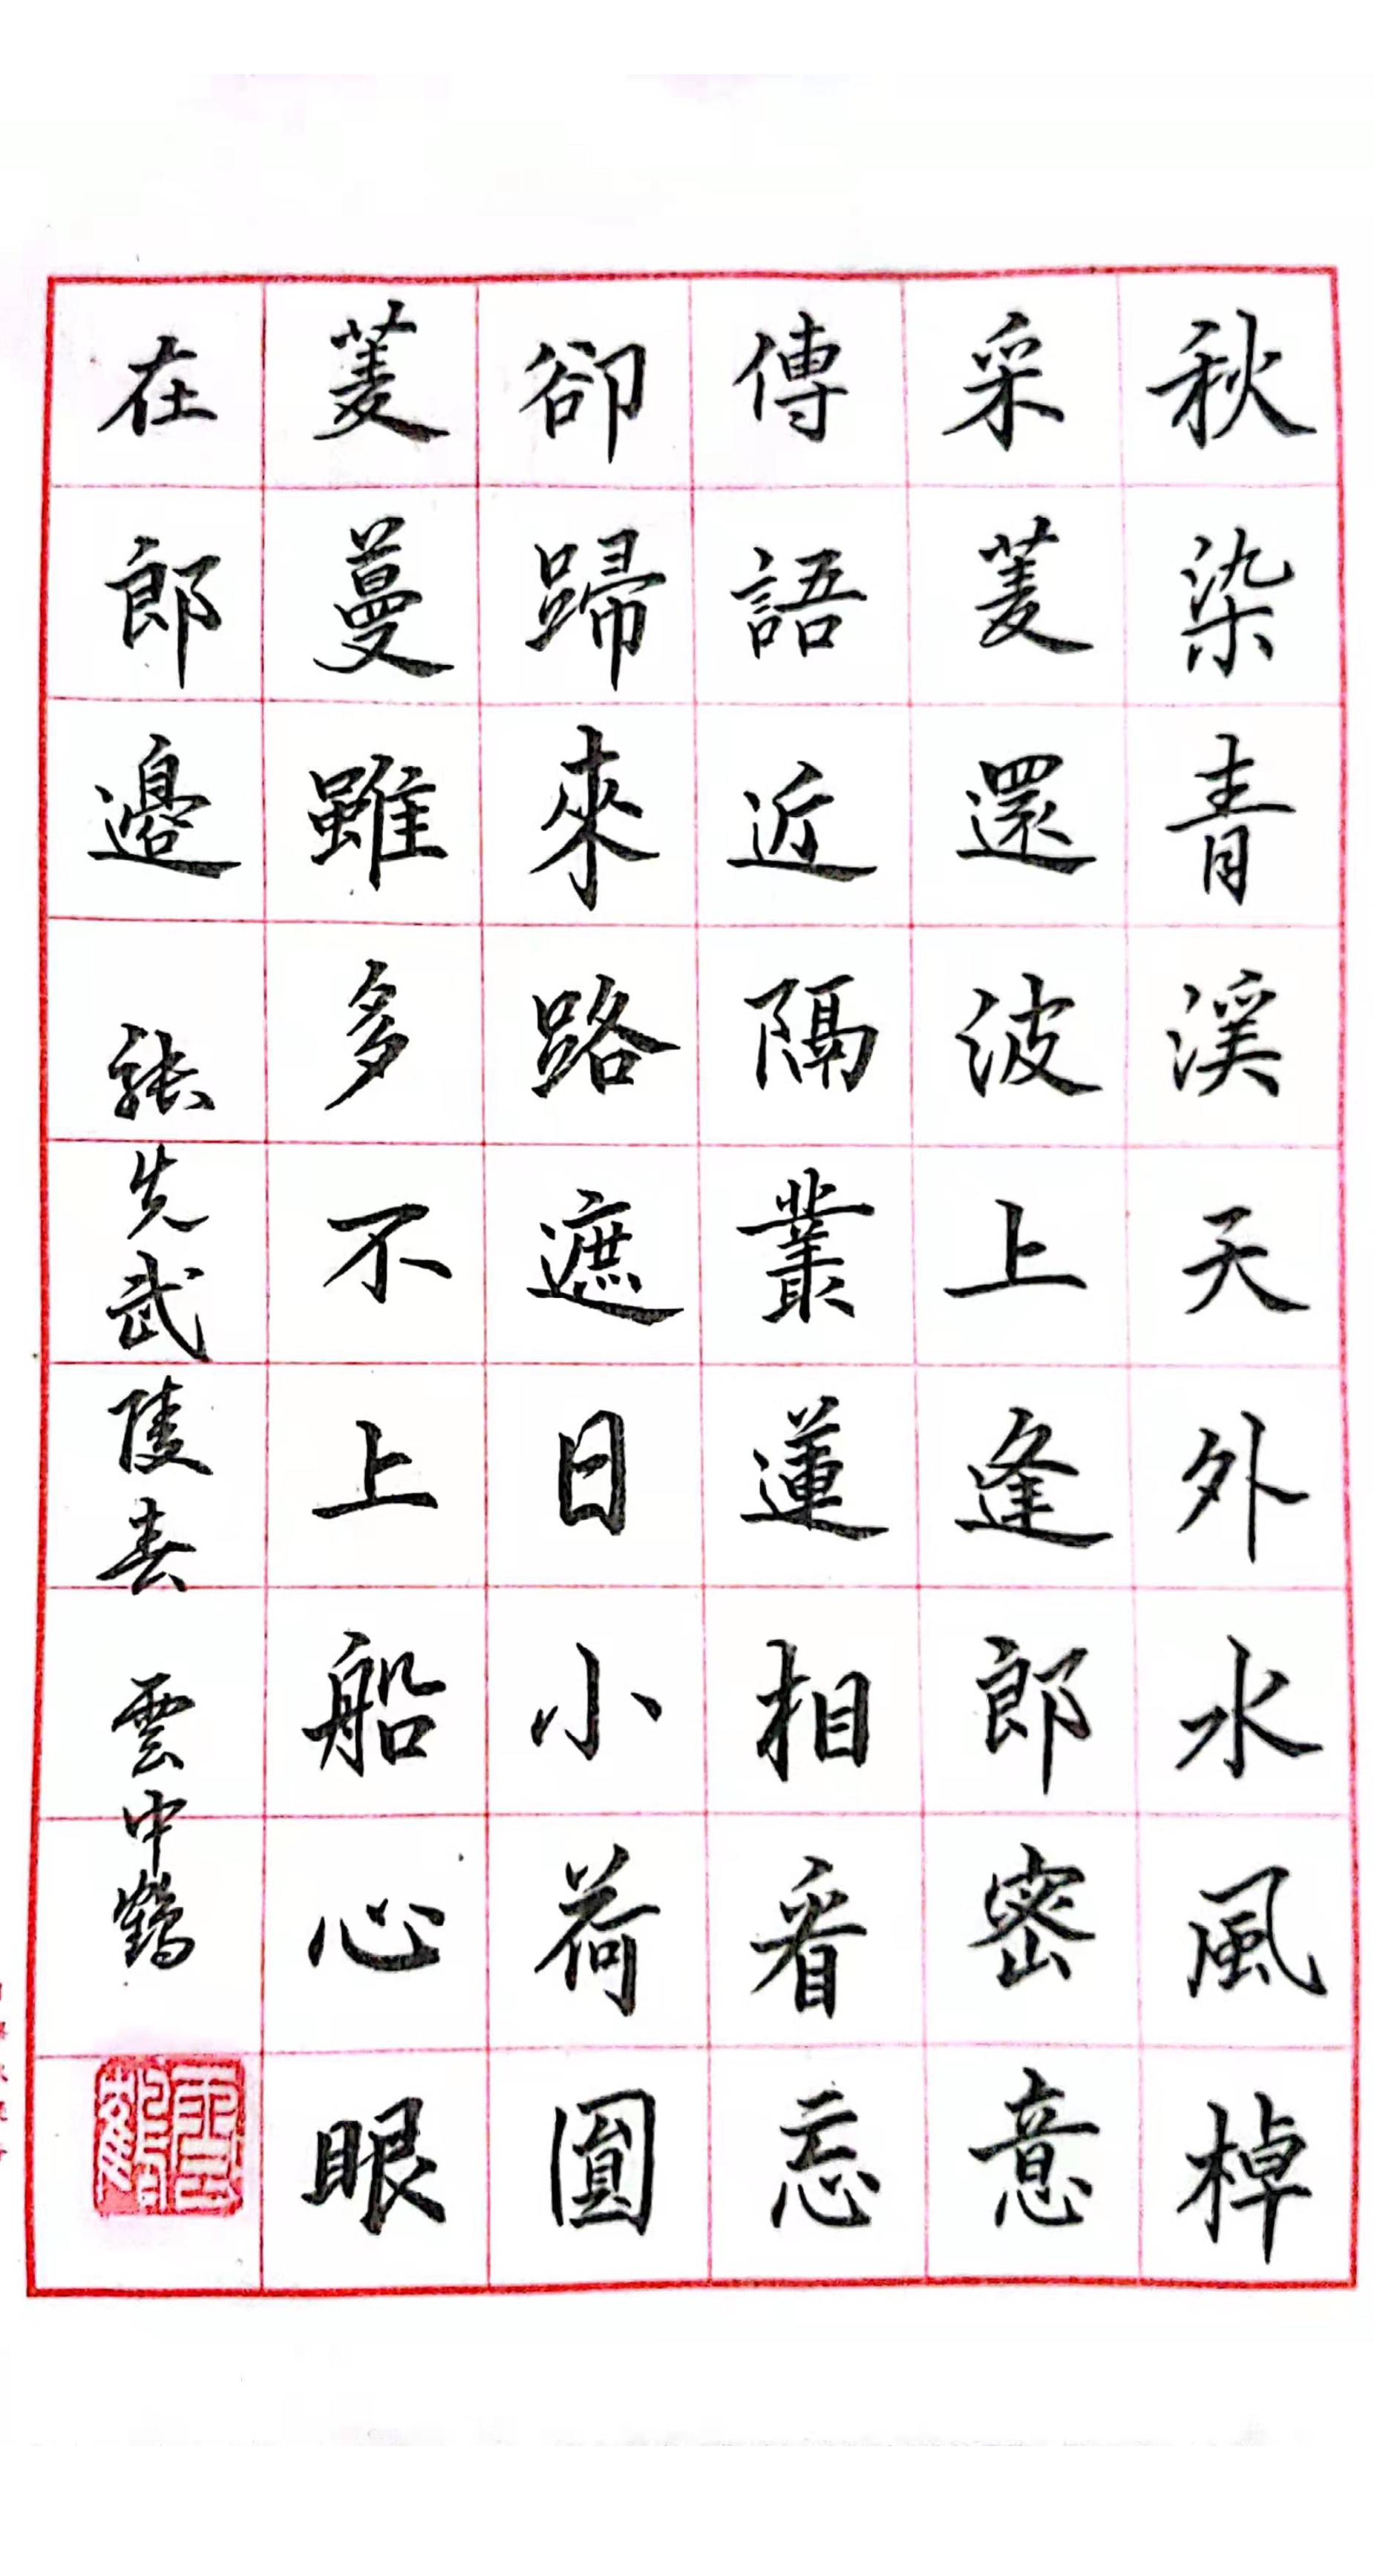 秋染青溪天外水風棹
采菱還波上逢郎密意
傳語近隔叢蓮相看忘
卻歸來路遮日小荷圓
菱蔓雖多不上船心眼
在郎邊 張先武陵春 雲中鶴